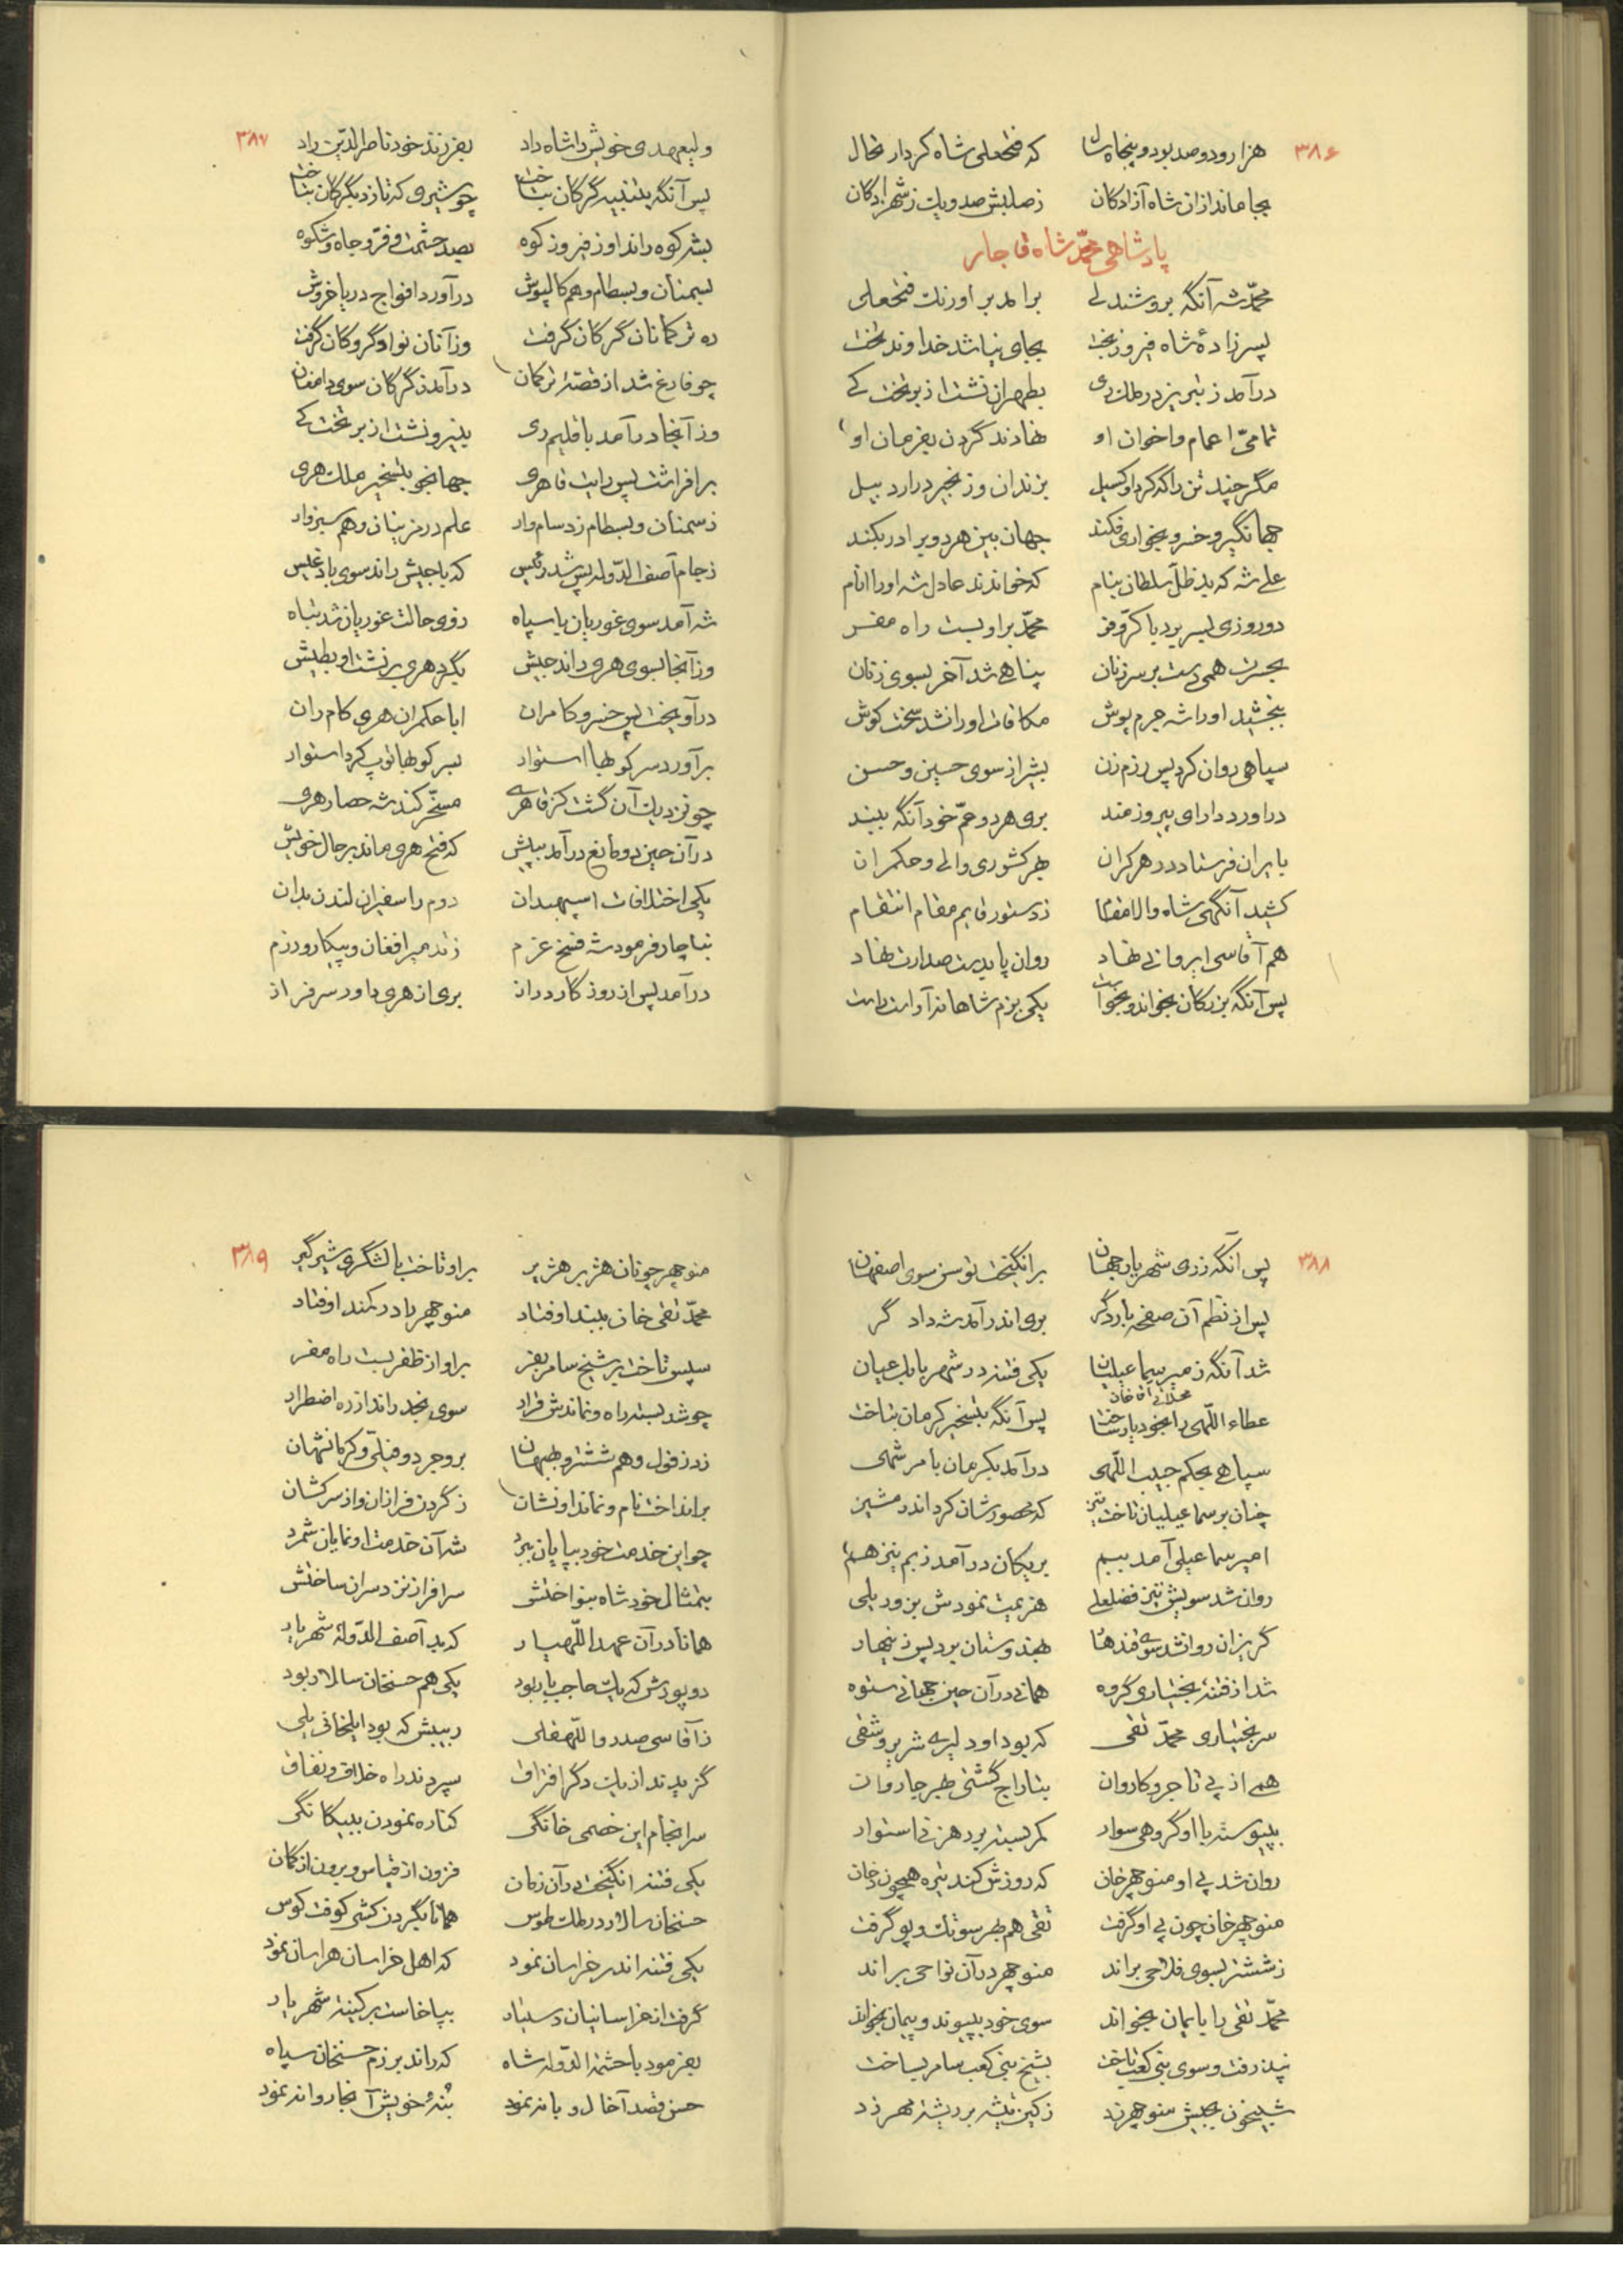 ۳۸۶
هزار و دوصد بود و پنجاه سال که فتحعلی شاه کرد ارتحال
بجا ماند از آن شاه آزادگان ز صلبش صد و یک ز شهزادگان
پادشاهی محمّد شاه قاجار
محمّد شه آنگه بروشندلی برآمد بر اورنگ فتحعلی
پسرزادهٔ شاه فیروزبخت بجای نیا شد خداوند تخت
درآمد ز تبریز در ملک ری بطهران نشست از بر تخت کی
تمامیّ اعمام و اخوان او نهادند گردن بفرمان او
مگر چند تن را که کرد او گسیل بزندان و زنجیر در اردبیل
جهانگیر و خسرو بخواری فکند جهان بین هر دو برادر بکند
علی شه که بد ظلّ سلطان بنام که خواندند عادل شه او را انام
دو روزی بسر برد با کرّ و فر محمّد بر او بست راه مفر
بحسرت همی دست بر سر زنان پناهی شد آخر بسوی زنان
ببخشید او را شه جرم پوش مکافات او را نشد سخت کوش
سپاهی روان کرد پس رزم زن بشیراز سوی حسین و حسن
درآورد دارای پیروزمند بری هر دو عمّ خود آنگه ببند
بایران فرستاد در هر کران بهر کشوری والی و حکمران
کشید آنگهی شاه والا مقام ز دستور قایم مقام انتقام
هم آقاسی ایروانی نهاد روان پا بدست صدارت نهاد
پس آنگه بزرگان بخواند و بخواست یکی بزم شاهانه آراست راست
۳۸۷
ولیعهدی خویش را شاه داد بفرزند خود ناصرالدّین راد
پس آنگه بتنبیه گرگان شتافت چو شیری که تازد بگرگان شتافت
بشر کوه راند او ز فیروزکوه بصد حشمت و فرّ و جاه و شکوه
بسمنان و بسطام و هم کالپوش درآورد افواج دریا خروش
ره ترکمانان گرگان گرفت وز آنان نوا و گروگان گرفت
چو فارغ شد از قصّهٔ ترکمان درآمد ز گرگان سوی دامغان
وز آنجا درآمد باقلیم ری بنیرو نشست از بر تخت کی
برافراشت پس رایت قاهری جهانجو بتسخیر ملک هری
ز سمنان و بسطام زد سام وار علم در مزینان و هم سبزوار
ز جام آصف الدّوله پس شد رئیس که با جیش راند سوی بادغیس
شه آمد سوی غوریان با سپاه ز وی حالت غوریان شد تباه
وز آنجا بسوی هری راند جیش بگرد هری برنشست او بطیش
درآویخت پس خسرو کامران ابا حکمران هری کام ران
برآورد سرکوبها استوار بسرکوبها توپ کرد استوار
چو نزدیک آن گشت کز قاهری مسخّر کند شه حصار هری
در آن حین دو مانع درآمد بپیش که فتح هری ماند بر حال خویش
یکی اختلافات اسپهبدان دوم را سفیران لندن بدان
بناچار فرمود شه فسخ عزم زند میر افغان و پیکار و رزم
درآمد پس از روزگار دراز بری از هری داور سرفراز
۳۸۸
پس آنگه ز ری شهریار جهان برانگیخت توسن سوی اصفهان
پس از نظم آن صفحه بار دگر بری اندر آمد شه دادگر
شد آنگه ز میر سماعیلیان یکی فتنه در شهر بابک عیان
محلاتی آقا خان
عطاء اللّهی را بخود یار ساخت پس آنگه بتسخیر کرمان بتاخت
سپاهی بحکم حبیب اللّهی درآمد بکرمان بامر شهی
چنان بر سماعیلیان تاخت تیز که محصورشان کرد اندر مشیز
امیر سماعیلی آمد ببم بریگان درآمد ز بم نیز هم
روان شد سویش تیز فضلعلی هزیمت نمودش بزور یلی
گریزان روان شد سوی قندهار بهندوستان برد پس زینهار
شد از فتنهٔ بختیاری گروه همانی در آن حین جهانی ستوه
سر بختیاری محمّد تقی که بود او دلیری شریر و شقی
همی از پی تاجر و کاروان بتاراج گشتی بهر جا روان
بپیوسته با او گروهی سوار کمر بسته بر رهزنی استوار
روان شد پی او منوچهر خان که روزش کند تیره همچون دخان
منوچهر خان چون پی او گرفت تقی هم بهر سو تک و پو گرفت
ز ششتر بسوی فلاحی براند منوچهر در آن نواحی براند
محمّد تقی را بایمان بخواند سوی خود بپیوند و پیمان بخواند
نپذرفت و سوی بنی کعب تاخت بشیخ بنی کعب سامر بساخت
شبیخون بجیش منوچهر زد ز کین تیشه بر ریشهٔ مهر زد
۳۸۹
منوچهر چونان هژبر هژیر بر او تاخت با لشگری شیرگیر
محمّد تقی خان ببند اوفتاد منوچهر را در کمند اوفتاد
سپس تاخت بر شیخ سامر بفر بر او از ظفر بست راه مفر
چو شد بسته راه و نماندش قرار سوی نجد راند از ره اضطرار
ز دزفول و هم ششتر و بهبهان بروجرد و فیلیّ و کرمانشهان
برانداخت نام و نماند او نشان ز گردن فرازان و از سرکشان
چو این خدمت خود بپایان ببرد شه آن خدمت او نمایان شمرد
بتمثال خود شاه بنواختش سرافراز نزد سران ساختش
همانا در آن عهد اللّهیار که بد آصف الدّولهٔ شهریار
دو پورش که یک حاجب بار بود یکی هم حسنخان سالار بود
ز آقاسی صدر واللّهقلی ربیبش که بود ایلخانی یلی
گزیدند از یکدگر افتراق سپردند راه خلاف و نفاق
سرانجام این خصمی خانگی کناره نمودن ببیگانگی
یکی فتنه انگیخت در آن زمان فزون از قیاس و برون از گمان
حسنخان سالار در ملک طوس همانا بگردن کشی کوفت کوس
یکی فتنه اندر خراسان نمود که اهل خراسان هراسان نمود
گرفت از خراسانیان دستیار بپا خاست بر کینهٔ شهریار
بفرمود با حشمة الدّوله شاه که راند برزم حسنخان سپاه
حسن قصد آخال و بانه نمود بُنهٔ خویش آنجا روانه نمود